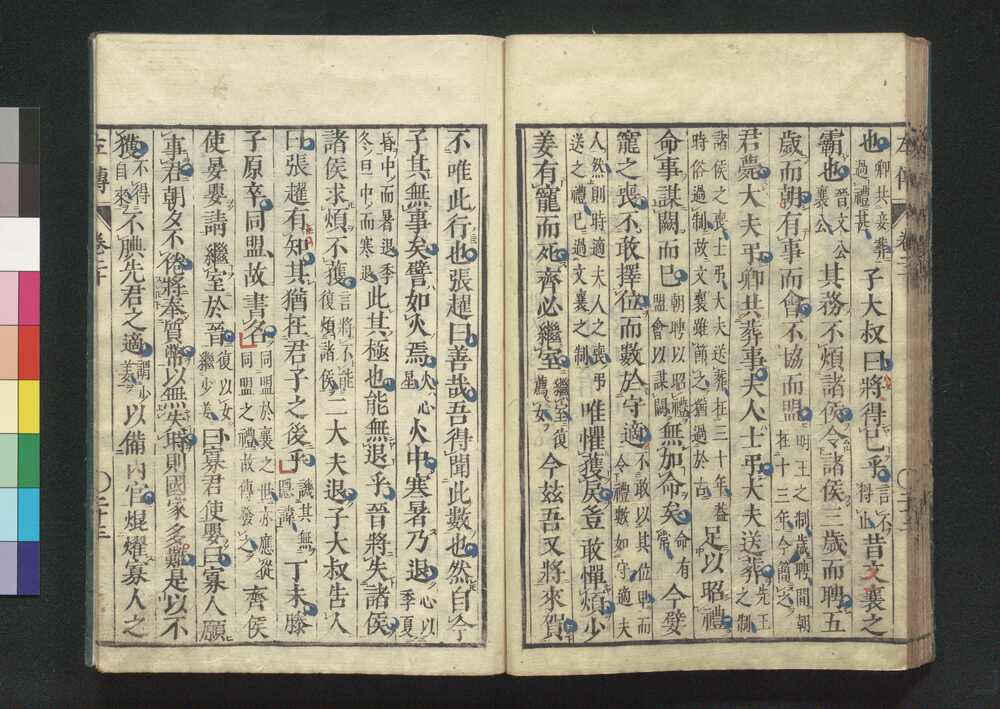 也卿共妾葬過禮甚子大叔曰將得已乎言不得止昔文襄之
霸也晉文公襄公其務不煩諸侯令諸侯三歲而聘五
歲而朝有事而會不協而盟明王之制歲聘間朝在十三年今簡之
君薨大夫弔卿共葬事夫人士弔大夫送葬先王之制
諸侯之喪士弔大夫送葬在三十年蓋時俗過制故文襄雖節之猶過於古足以昭禮
命事謀闕而已朝聘以昭禮盟會以謀闕無加命矣命有常今嬖
寵之喪不敢擇位而數於守適不敢以其位卑而令禮數如守適夫
人然則時適夫人之喪弔送之禮已過文襄之制唯懼獲戾豈敢憚煩少
姜有寵而死齊必繼室繼室復薦女今茲吾又將來賀
不唯此行也張趯曰善哉吾得聞此數也然自今
子其無事矣譬如火焉火心星火中寒暑乃退心以季夏
昏中而暑退季冬旦中而寒退此其極也能無退乎晉將失諸侯
諸侯求煩不獲言將不能復煩諸侯二大夫退子大叔告人
曰張趯有知其猶在君子之後乎譏其無隱諱丁未滕
子原卒同盟故書名同盟於襄之世亦應從同盟之禮故傳發之齊侯
使晏嬰請繼室於晉復以女繼少姜曰寡君使嬰曰寡人願
事君朝夕不倦將奉質幣以無失時則國家多難是以不
獲不得自來不腆先君之適謂少姜以備內官焜燿寡人之
左傳
卷二十